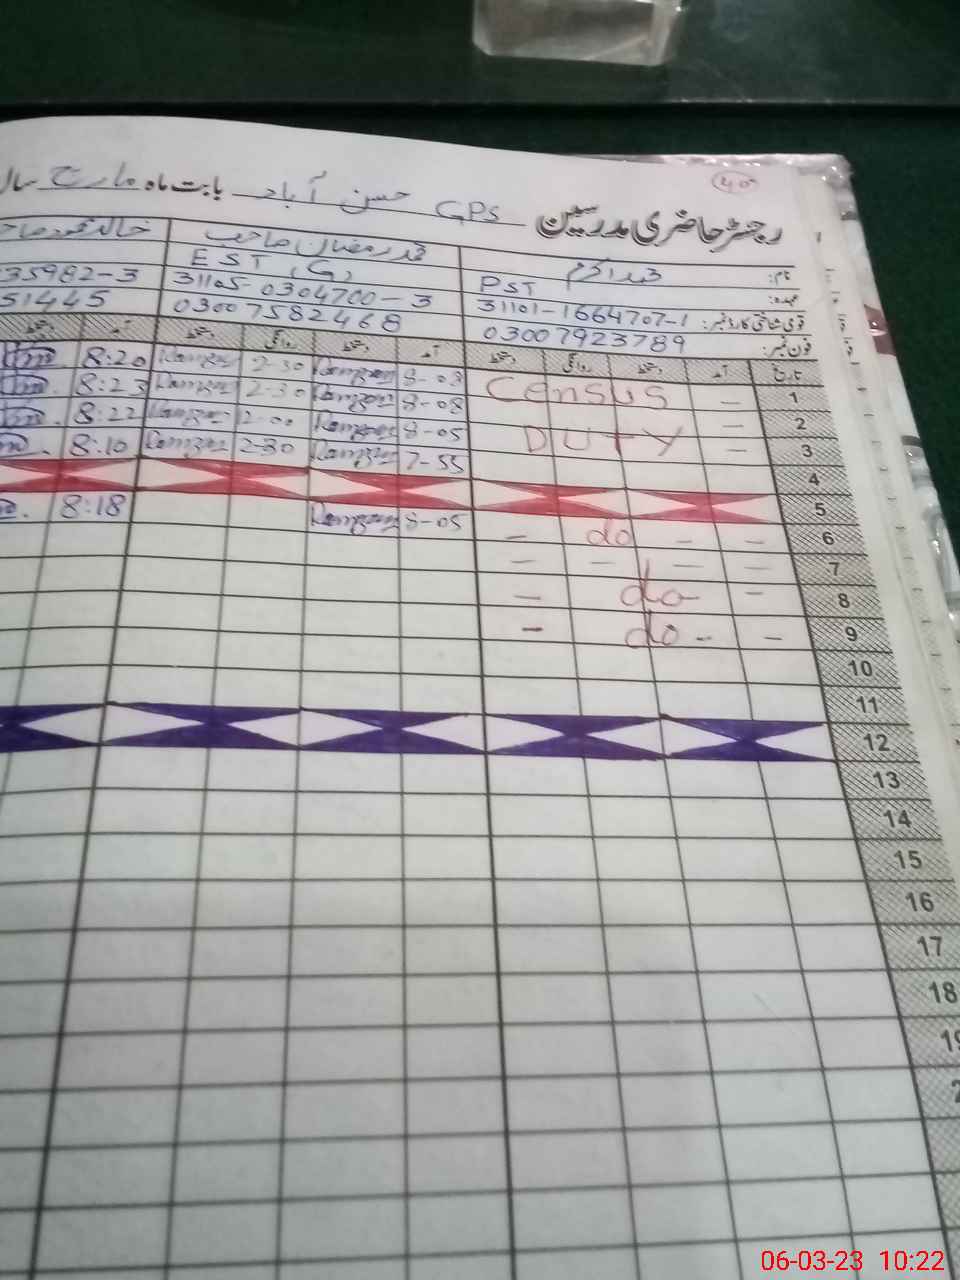 ۴۰
رجسٹر حاضری مدرسین GPS حسن آباد بابت ماہ مارچ سال
نام: محمد اکرم
محمد رمضان صاحب
خالد محمود صاحب
عہدہ: PST
EST (G)
قومی شناختی کارڈ نمبر: 31101-1664707-1
31105-0304700-3
35982-3
فون نمبر: 03007923789
03007582468
51445
تاریخ آمد دستخط روانگی دستخط آمد دستخط روانگی دستخط آمد دستخط
1 — Census 8-08 Ramzan 2-30 Ramzan 8:20
2 — 8-08 Ramzan 2-30 Ramzan 8:23
3 — DUTY 8-05 Ramzan 12-00 Ramzan 8:22
4 7-55 Ramzan 2-30 Ramzan 8:10
5
6 — — do — 8-05 Ramzan 8:18
7 — — — —
8 — do —
9 — - do —
10
11
12
13
14
15
16
17
18
19
2
06-03-23 10:22